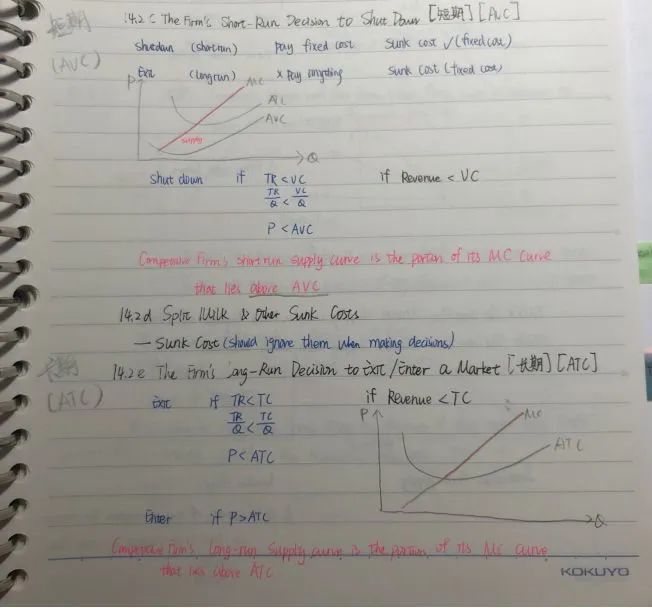 短期
14.2 c The Firm's Short-Run Decision to Shut Down [短期] [AVC]
(AVC)
Shutdown (short run) Pay fixed cost Sunk cost ✓ (fixed cost)
Exit (long run) × Pay anything Sunk cost (fixed cost)
P
MC
ATC
AVC
supply
Q
Shut down if TR < VC if Revenue < VC
TR/Q < VC/Q
P < AVC
Competitive Firm's short run supply curve is the portion of its MC curve
that lies above AVC
14.2d Spilt Milk & Other Sunk Costs
— Sunk Cost (should ignore them when making decisions)
长期
14.2 e The Firm's Long-Run Decision to Exit / Enter a Market [长期] [ATC]
(ATC)
Exit if TR < TC if Revenue < TC
TR/Q < TC/Q
P < ATC
P
MC
ATC
Q
Enter if P > ATC
Competitive Firm's Long-run supply curve is the portion of its MC curve
that lies above ATC
KOKUYO